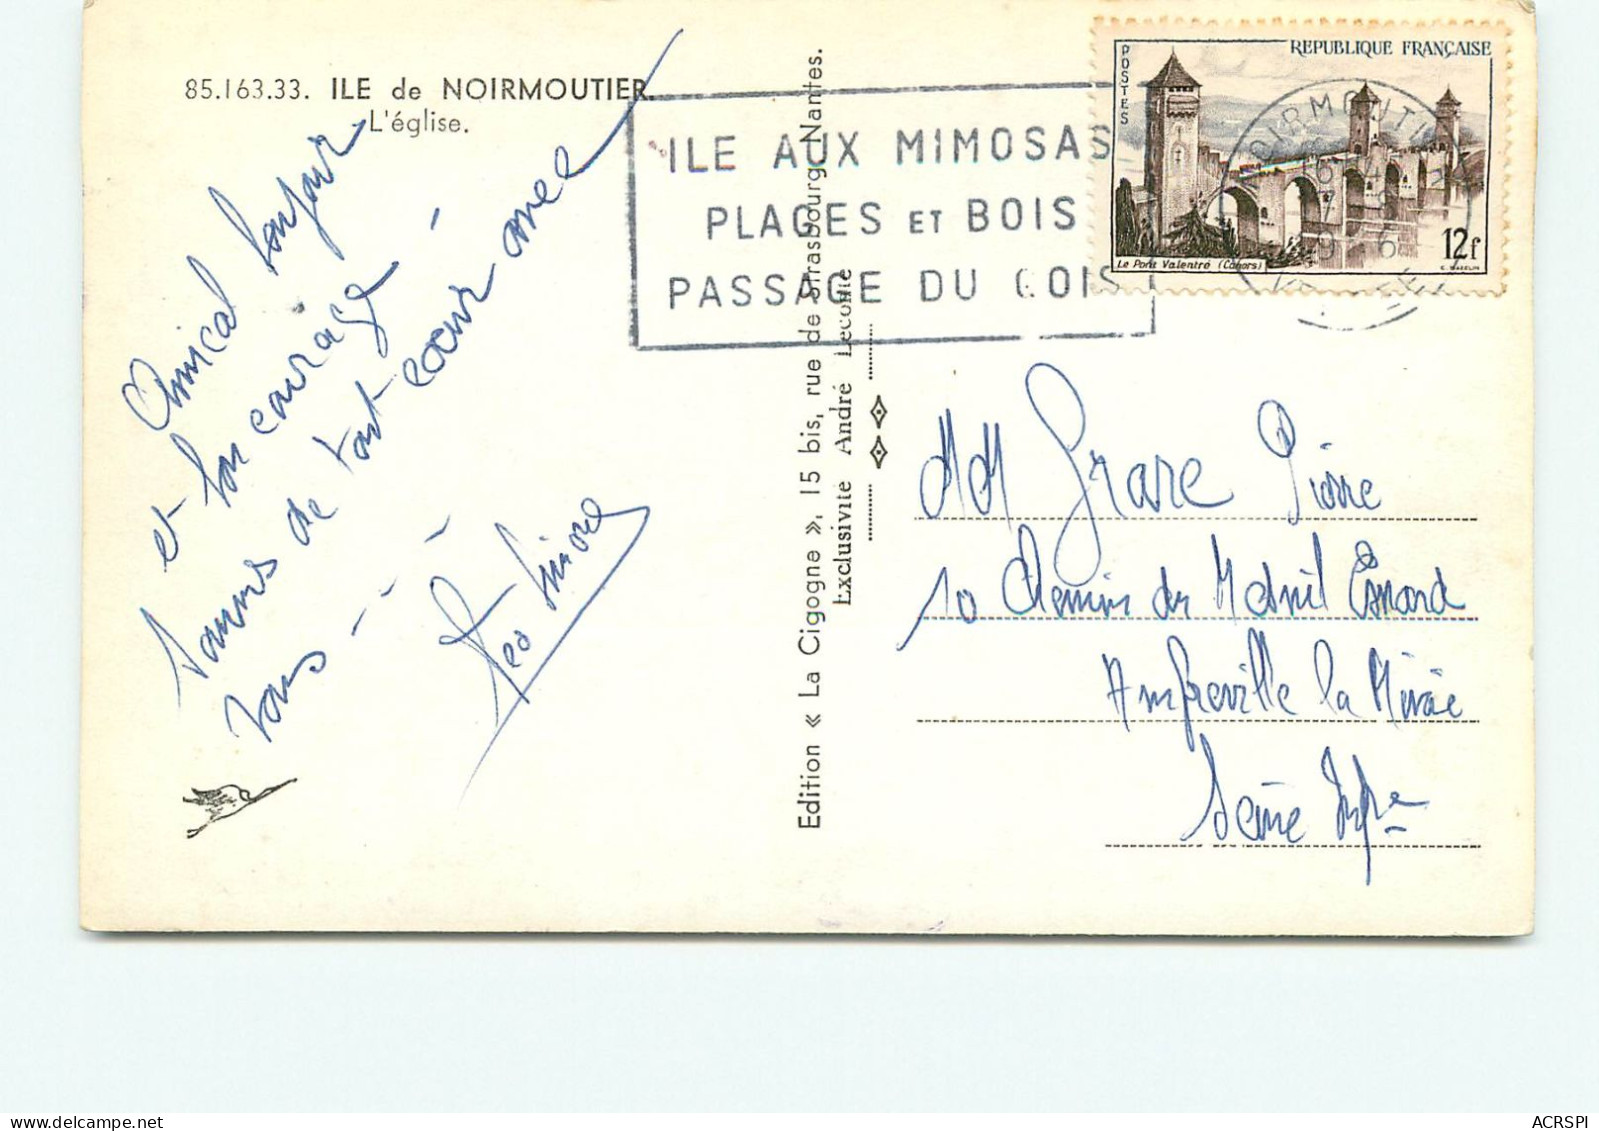 85.163.33. ILE de NOIRMOUTIER.
L'église.
Amical bonjour
et bon courage !
Sommes de tout cœur avec
vous
Edition « La Cigogne », 15 bis, rue de Strasbourg, Nantes.
Exclusivité André Lecomte
ILE AUX MIMOSAS
PLAGES ET BOIS
PASSAGE DU GOIS
POSTES
REPUBLIQUE FRANÇAISE
NOIRMOUTIER
VENDEE
Le Pont Valentré (Cahors)
12f
MM Grare Pierre
10 Chemin du Mesnil
Amfreville la Mivoie
Seine Infre
delcampe.net
ACRSPI